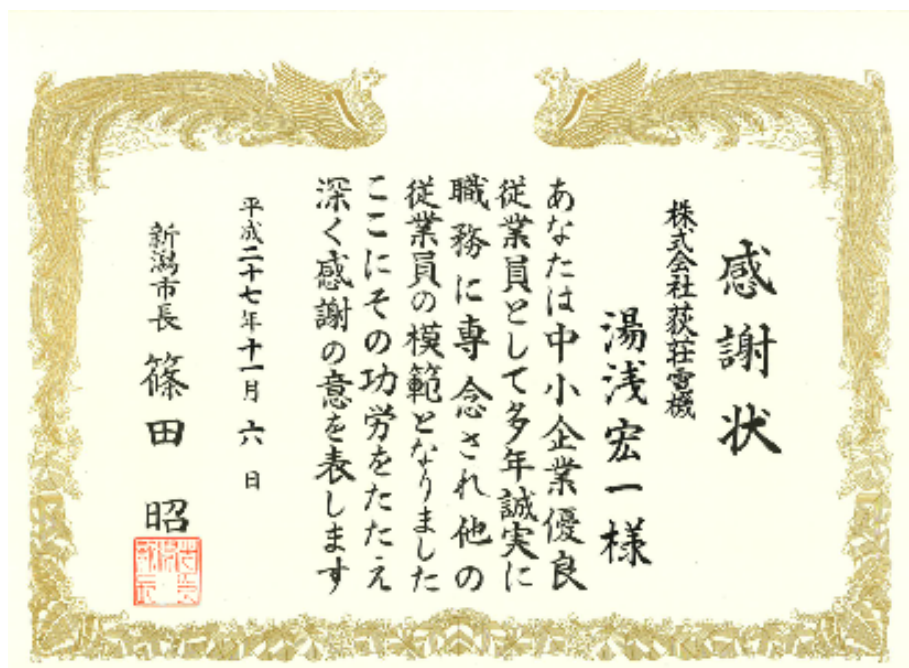 感謝状
株式会社荻荘電機
湯浅宏一様
あなたは中小企業優良
従業員として多年誠実に
職務に専念され他の
従業員の模範となりました
ここにその功労をたたえ
深く感謝の意を表します
平成二十七年十一月六日
新潟市長 篠田昭